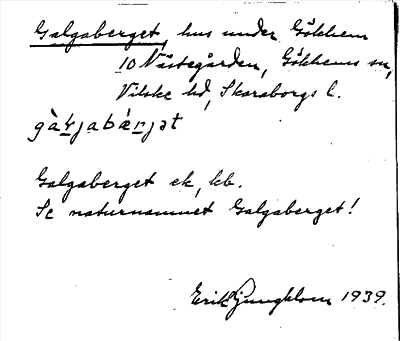 Galgaberget, hus under Gökhem
10 Västegården, Gökhems sn,
Vilske hd, Skaraborgs l.
gàljabær̀jət
Galgaberget ek, kb.
Se naturnamnet Galgaberget!
Erik Ljungblom 1939.